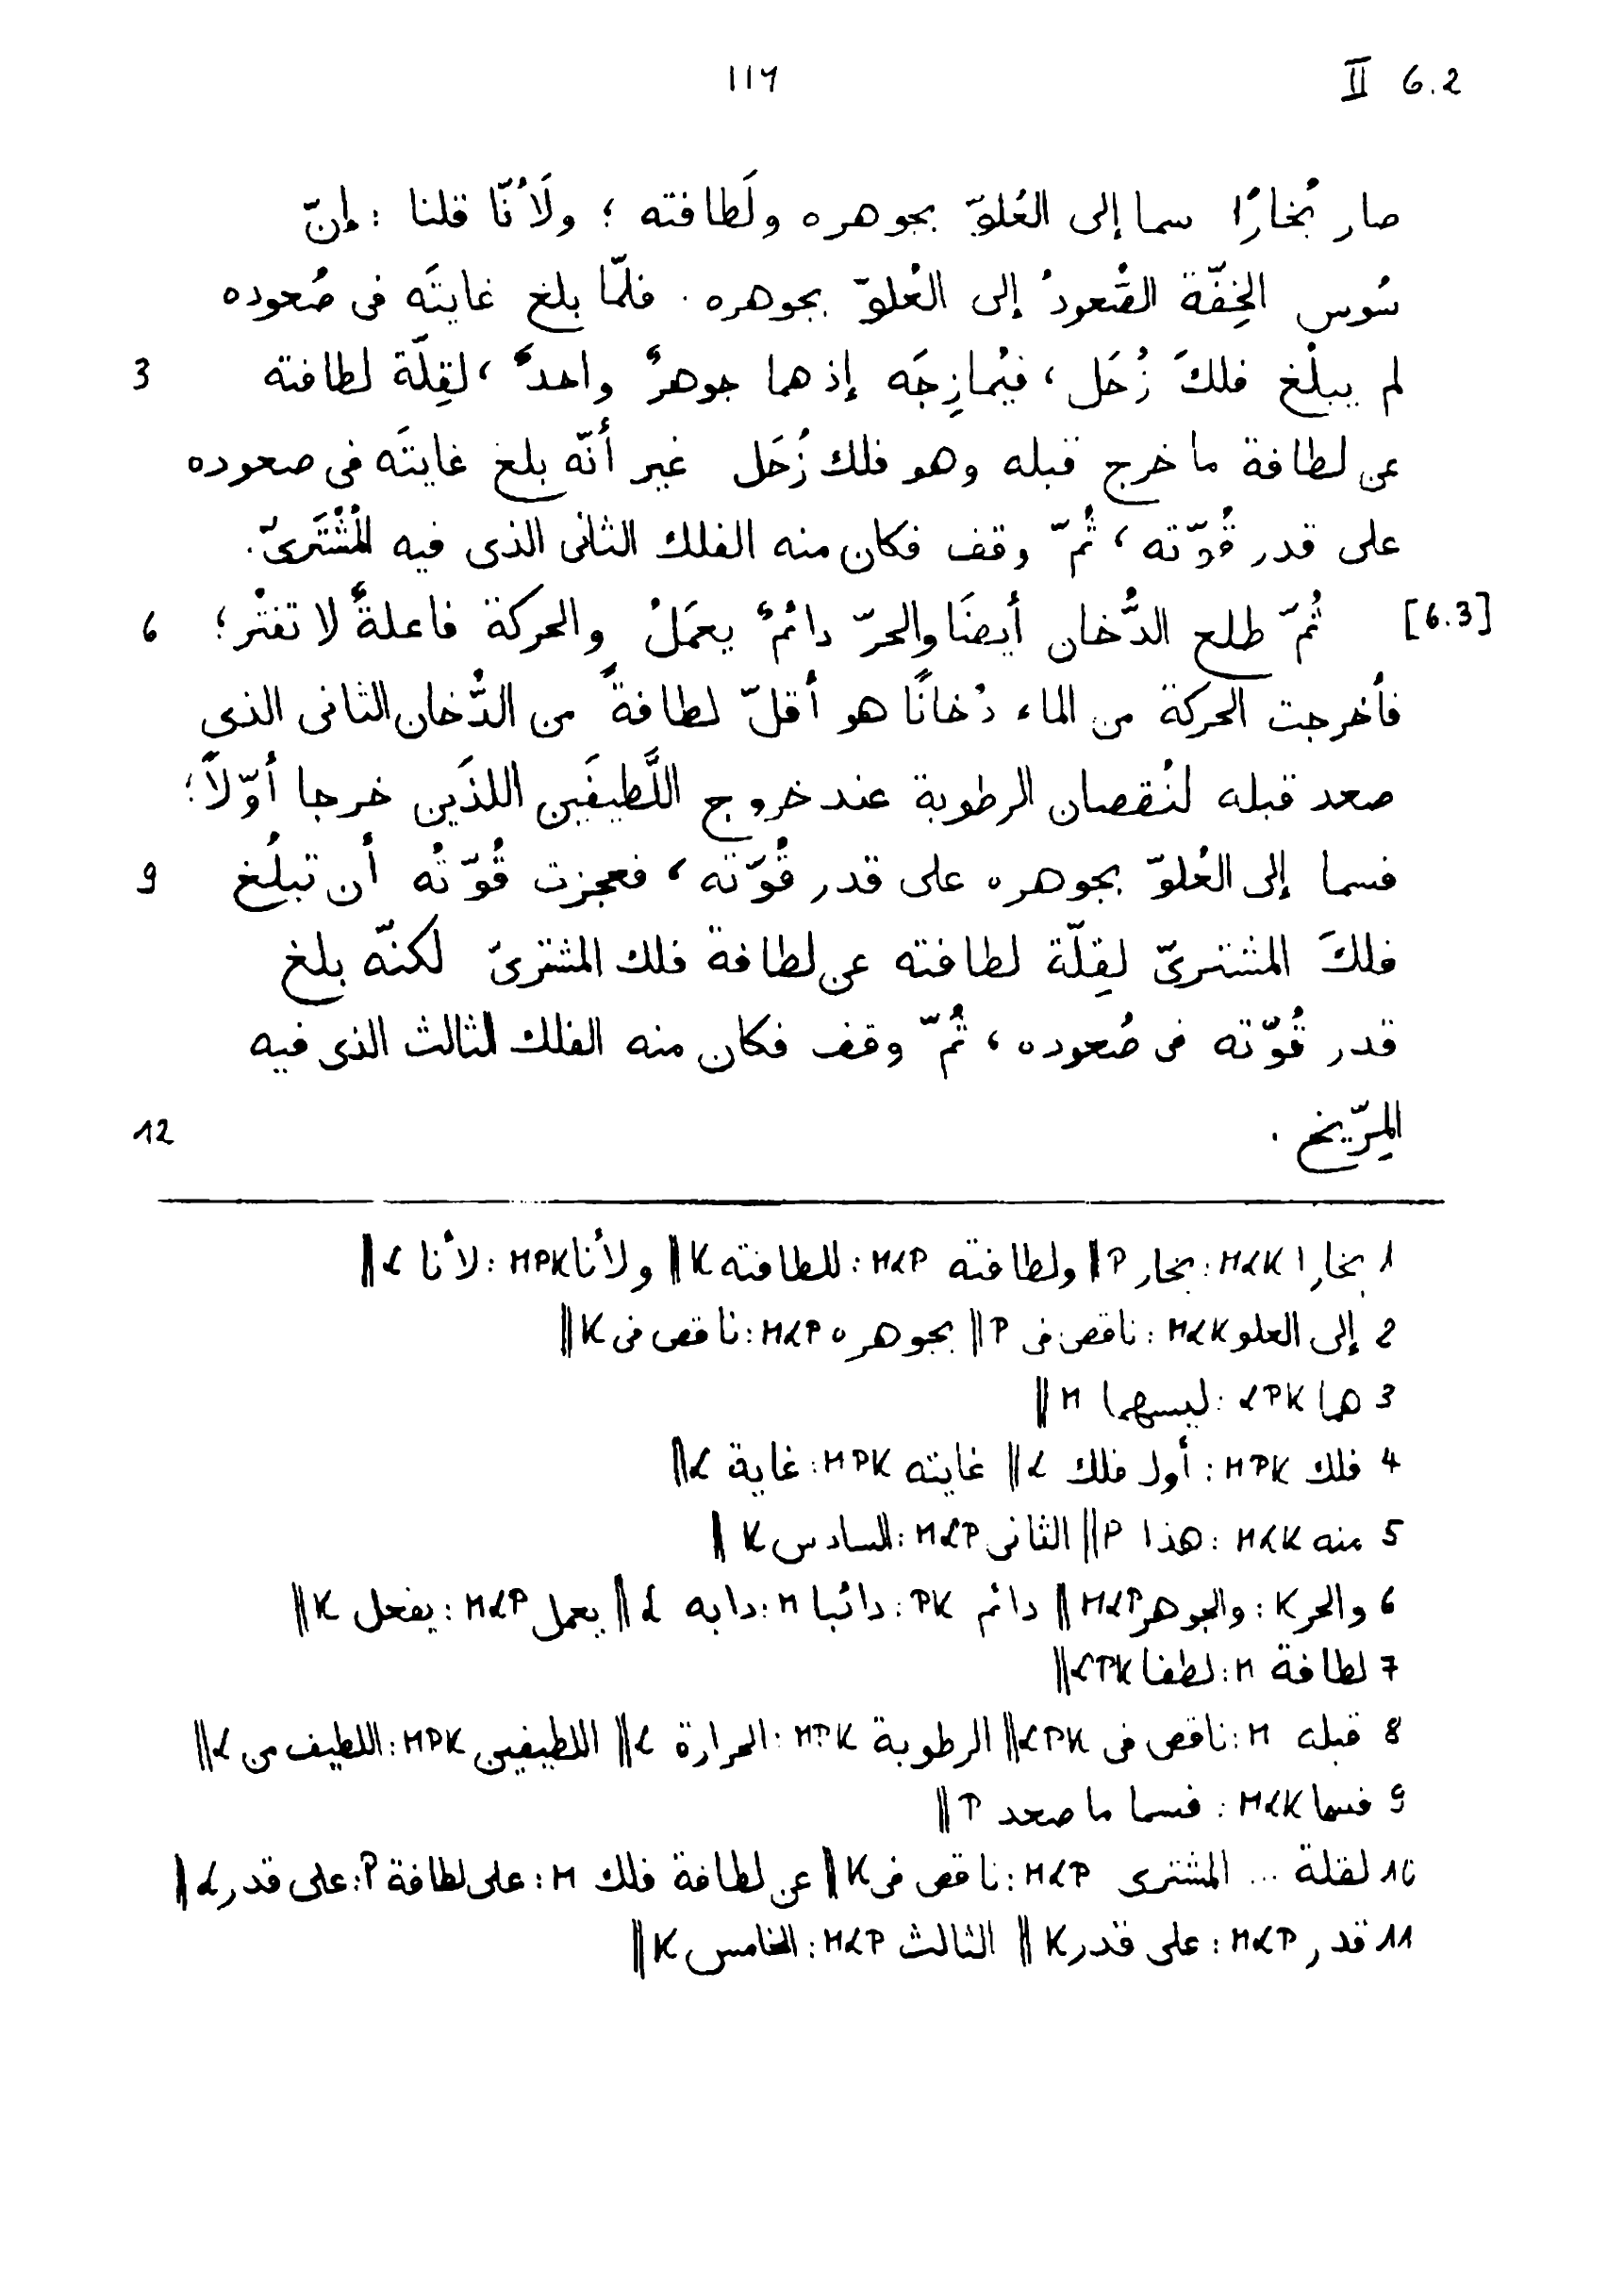 II 6.2
١١٦
صار بُخارًا سما إلى العُلوّ بجوهره ولَطافته ؛ ولَأنّا قلنا : إنّ
سُوس الخِفّة الصُّعودُ إلى العُلوّ بجوهره . فلمّا بلغ غايتَه فى صُعوده
لم يبلُغ فلكَ زُحَل ، فيُمازِجَه إذ هما جوهرٌ واحدٌ ، لقِلّة لطافته 3
عن لطافة ما خرج قبله وهو فلك زُحَل غير أنّه بلغ غايتَه فى صعوده
على قدر قُوّته ، ثُمّ وقف فكان منه الفلك الثانى الذى فيه المُشْتَرىّ .
[6.3] ثُمّ طلع الدُّخان أيضًا والحرّ دائمٌ يعمَلُ والحركة فاعلةٌ لا تفتُر ؛ 6
فأخرجت الحركة من الماء دُخانًا هو أقلّ لطافةً من الدُّخان الثانى الذى
صعد قبله لنُقصان الرطوبة عند خروج اللَّطيفَين اللذَين خرجا أوّلاً ؛
فسما إلى العُلوّ بجوهره على قدر قُوّته ، فعجزت قُوّتُه أن تبلُغ 9
فلكَ المشترىّ لقِلّة لطافته عن لطافة فلك المشترىّ لكنّه بلغ
قدر قُوّته فى صُعوده ، ثُمّ وقف فكان منه الفلك الثالث الذى فيه
المِرّيخ . 12
1 بخارا MLK : بخار P || ولطافته MLP : للطافته K || ولأنا MPK : لأنا L ||
2 إلى العلو MLK : ناقص فى P || بجوهره MLP : ناقص فى K ||
3 هما LPK : ليسهما M ||
4 فلك MPK : أول فلك L || غايته MPK : غاية L ||
5 منه MLK : هذا P || الثانى MLP : السادس K ||
6 والحر K : والجوهر MLP || دائم PK : دائبا M : دابه L || يعمل MLP : يفعل K ||
7 لطافة M : لطفا LPK ||
8 قبله M : ناقص فى LPK || الرطوبة MPK : الحرارة L || اللطيفين MPK : اللطيف من L ||
9 فسما MLK : فسما ما صعد P ||
10 لقلة ... المشترى MLP : ناقص فى K || عن لطافة فلك M : على لطافة P : على قدر L ||
11 قدر MLP : على قدر K || الثالث MLP : الخامس K ||